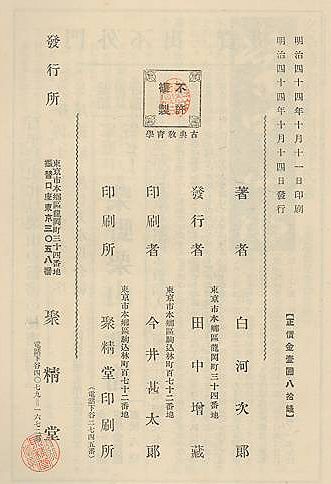 明治四十四年十月十一日印刷
明治四十四年十月十四日發行
【正價金壹圓八拾錢】
不許
複製
古典敎育學
著者 白河次郎
東京市本鄕區龍岡町三十四番地
發行者 田中增藏
東京市本鄕區駒込林町百七十二番地
印刷者 今井甚太郎
東京市本鄕區駒込林町百七十二番地
印刷所 聚精堂印刷所
(電話下谷二七四五番)
發行所
東京市本鄕區龍岡町三十四番地
振替口座東京三〇五八番
聚精堂
電話下谷四〇七九・一六七二番